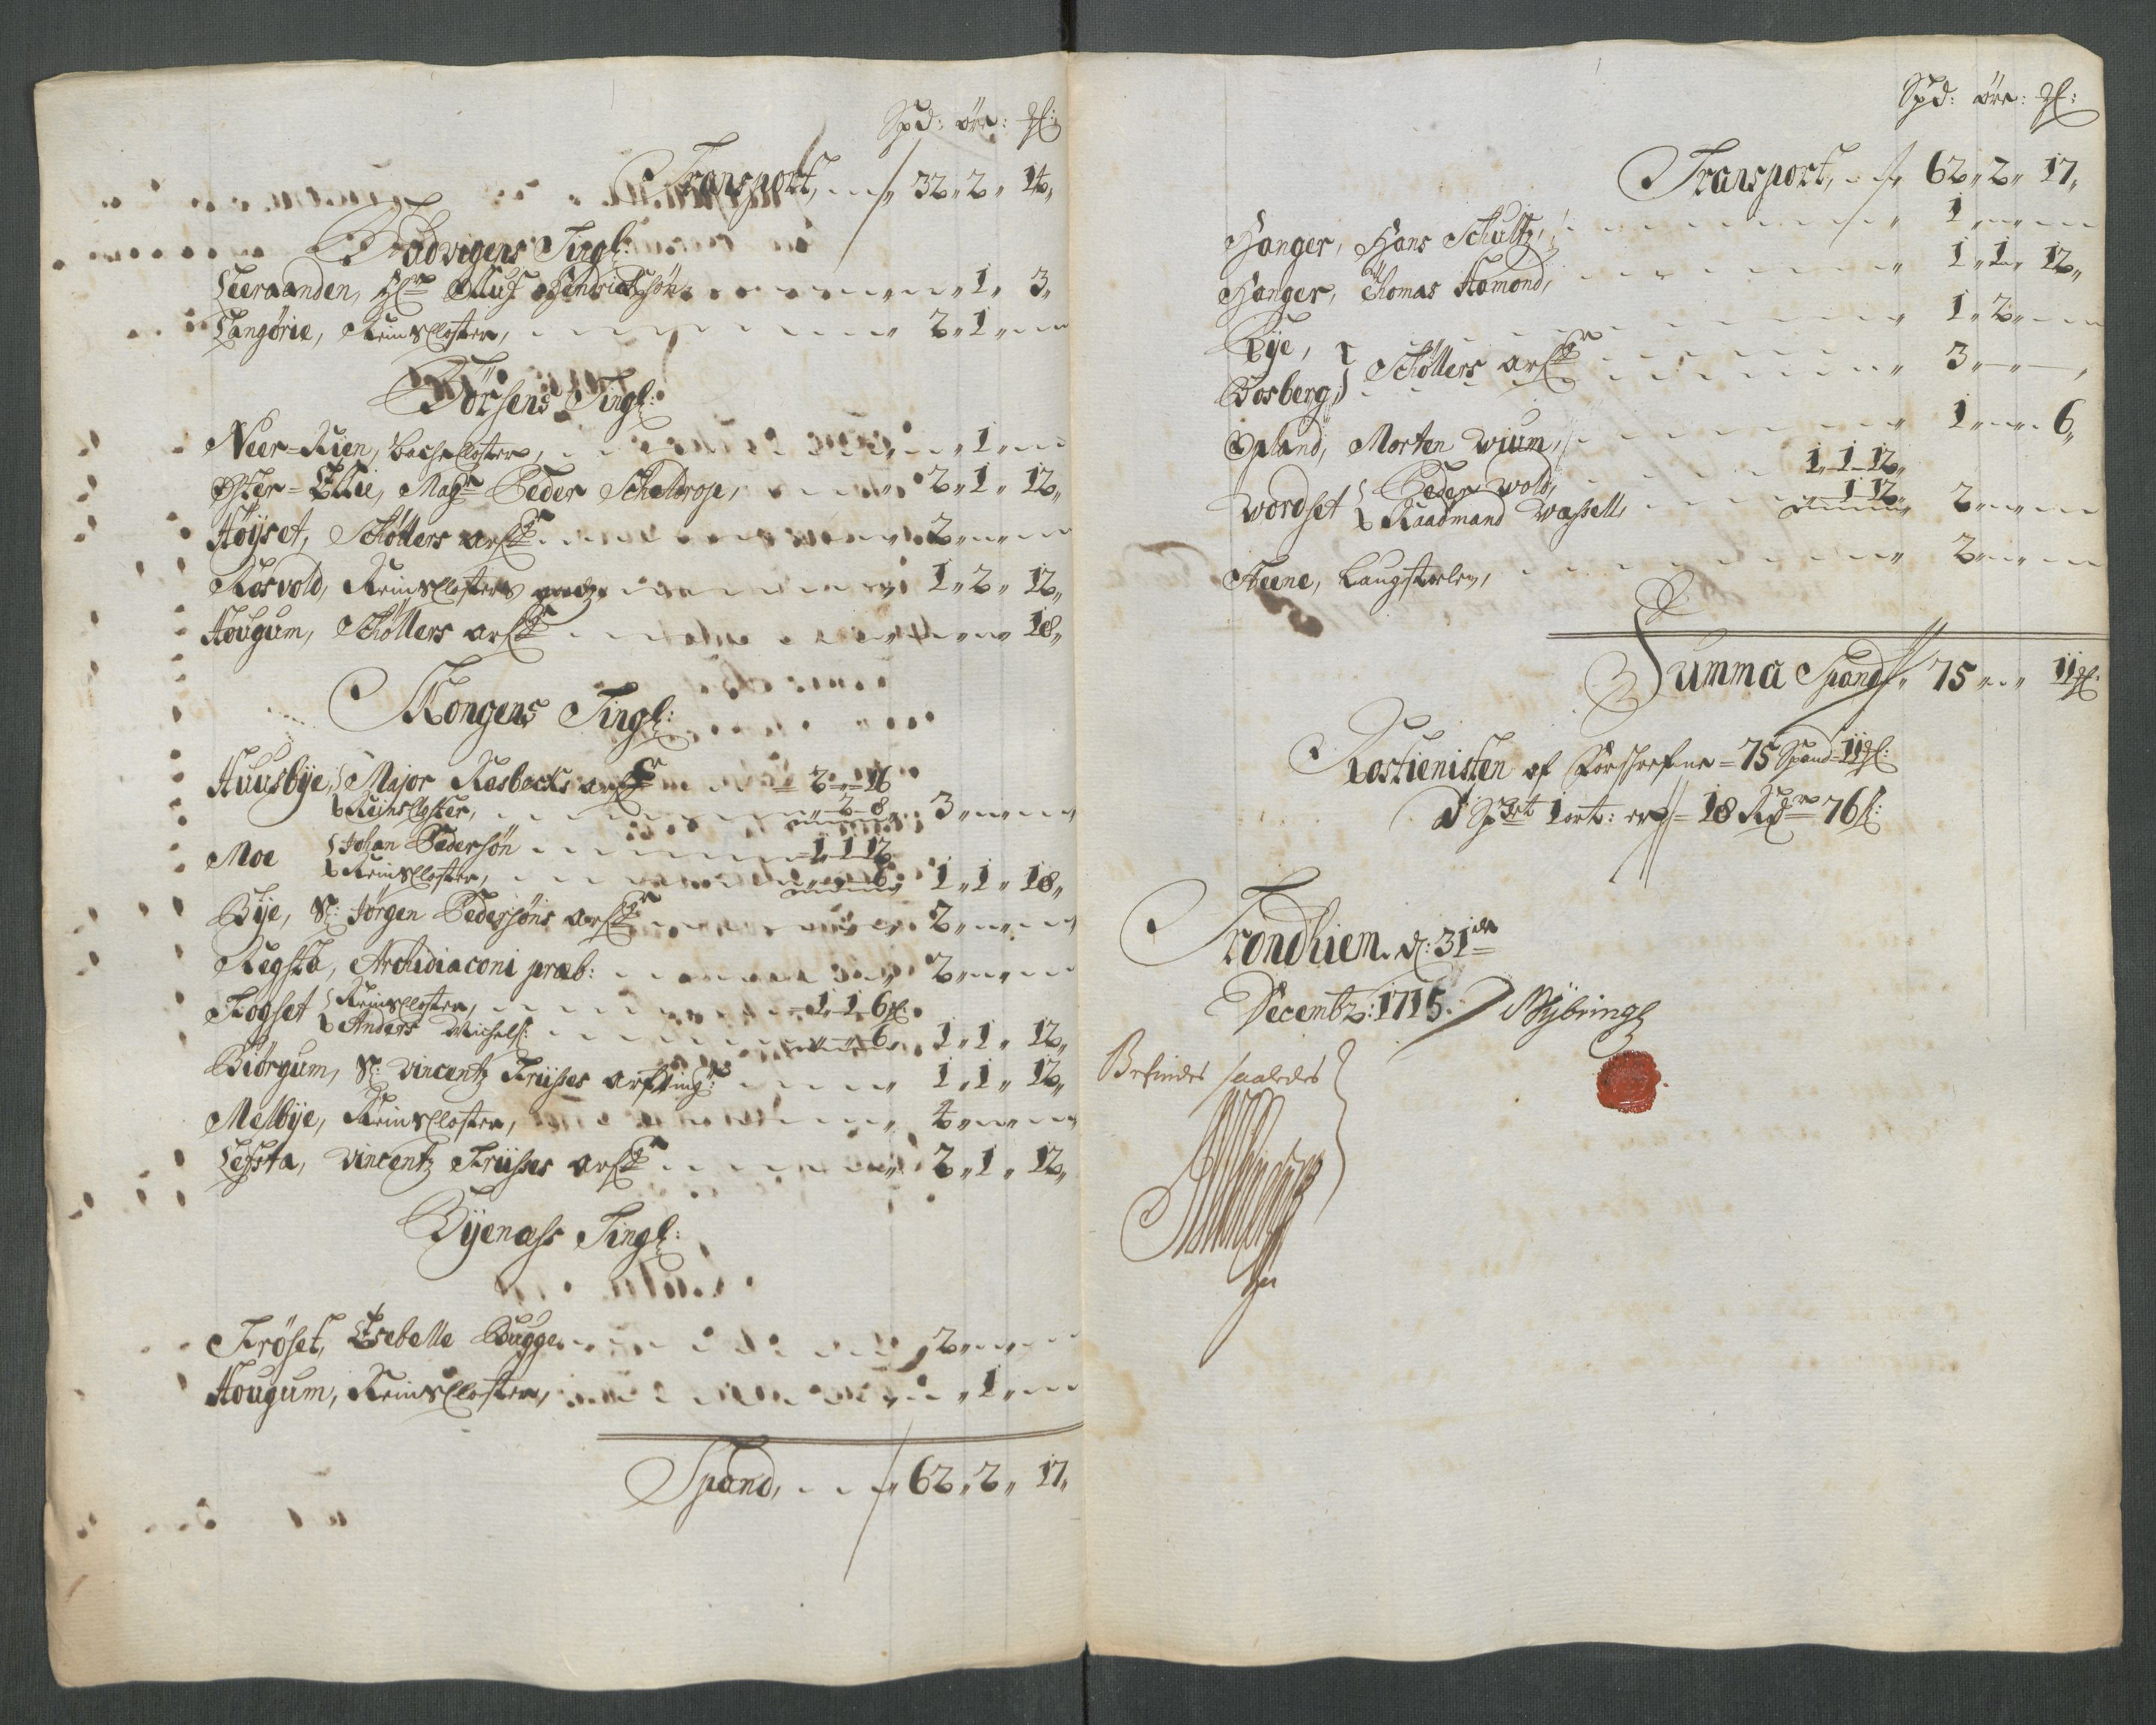 Spd: öre: ꝃl:
Transport, 32 „ 2 „ 14 „
Stadvigens Tingl:
Leeraanden, Hr Oluf Hendrichsøn 1 „ 3 „
Langörie, Reins Closter, 2 „ 1 „
Börsens Tingl:
Neer-Rien, Bache Closter, 1 „
Öster-Ellie, Magr Peder Scheldrop, 2 „ 1 „ 12 „
Höÿset, Schøllers arf 2 „
Rosvold, Reins Closters 1 „ 2 „ 12 „
Hougum, Schøllers arf 18 „
Skongens Tingl:
Huusbÿe, Major Kosbocks arf 2 - 16
Reins Closter, 2 - 8 „ 3 „
Moe Johan Pedersøn 1 - 1 12
Reins Closter, 6 „ 1 „ 1 „ 18 „
Bÿe, Sl: Jörgen Pedersøns arf 2 „
Regsta, Archidiaconi præb: 2 „
Fogset Reins Closter, 1 1 6
Anders Michels: 6 „ 1 „ 1 „ 12 „
Biörgum, Sl: Vincentz Friisses arfving: 1 „ 1 „ 12 „
Melbÿe, Reins Closter, 4 „
Lefsta, Vincentz Friisses arf 2 „ 1 „ 12 „
Bÿenæss Tingl:
Fröset, Esebelle Bugge 2 „
Hougum, Reins Closter, 1 „
Spand, 62 „ 2 „ 17 „
Spd: öre: ꝃl:
Transport, 62 „ 2 „ 17 „
Hanger, Hans Schultz, 1 „
Hanger, Thomas Hamond, 1 „ 1 „ 12 „
Bÿe, 1 „ 2 „
Schøllers arf
Bosberg, 3 „
Opland, Morten Wium, 1 „ 6 „
1 „ 1 12 „
Wordset Peder Wold,
Raadmand Wassell, 1 12 „ 2 „
Steene, Laugstolen, 2 „
Summa Spand 75 „ 11
Rostienisten af Forschrefne = 75 Spand = 11
à Spd 1 ort: er = 18 Rdr 76 ß:
Trondhiem. d: 31de
Decembr: 1715. Mÿbring
Befindes saaledes